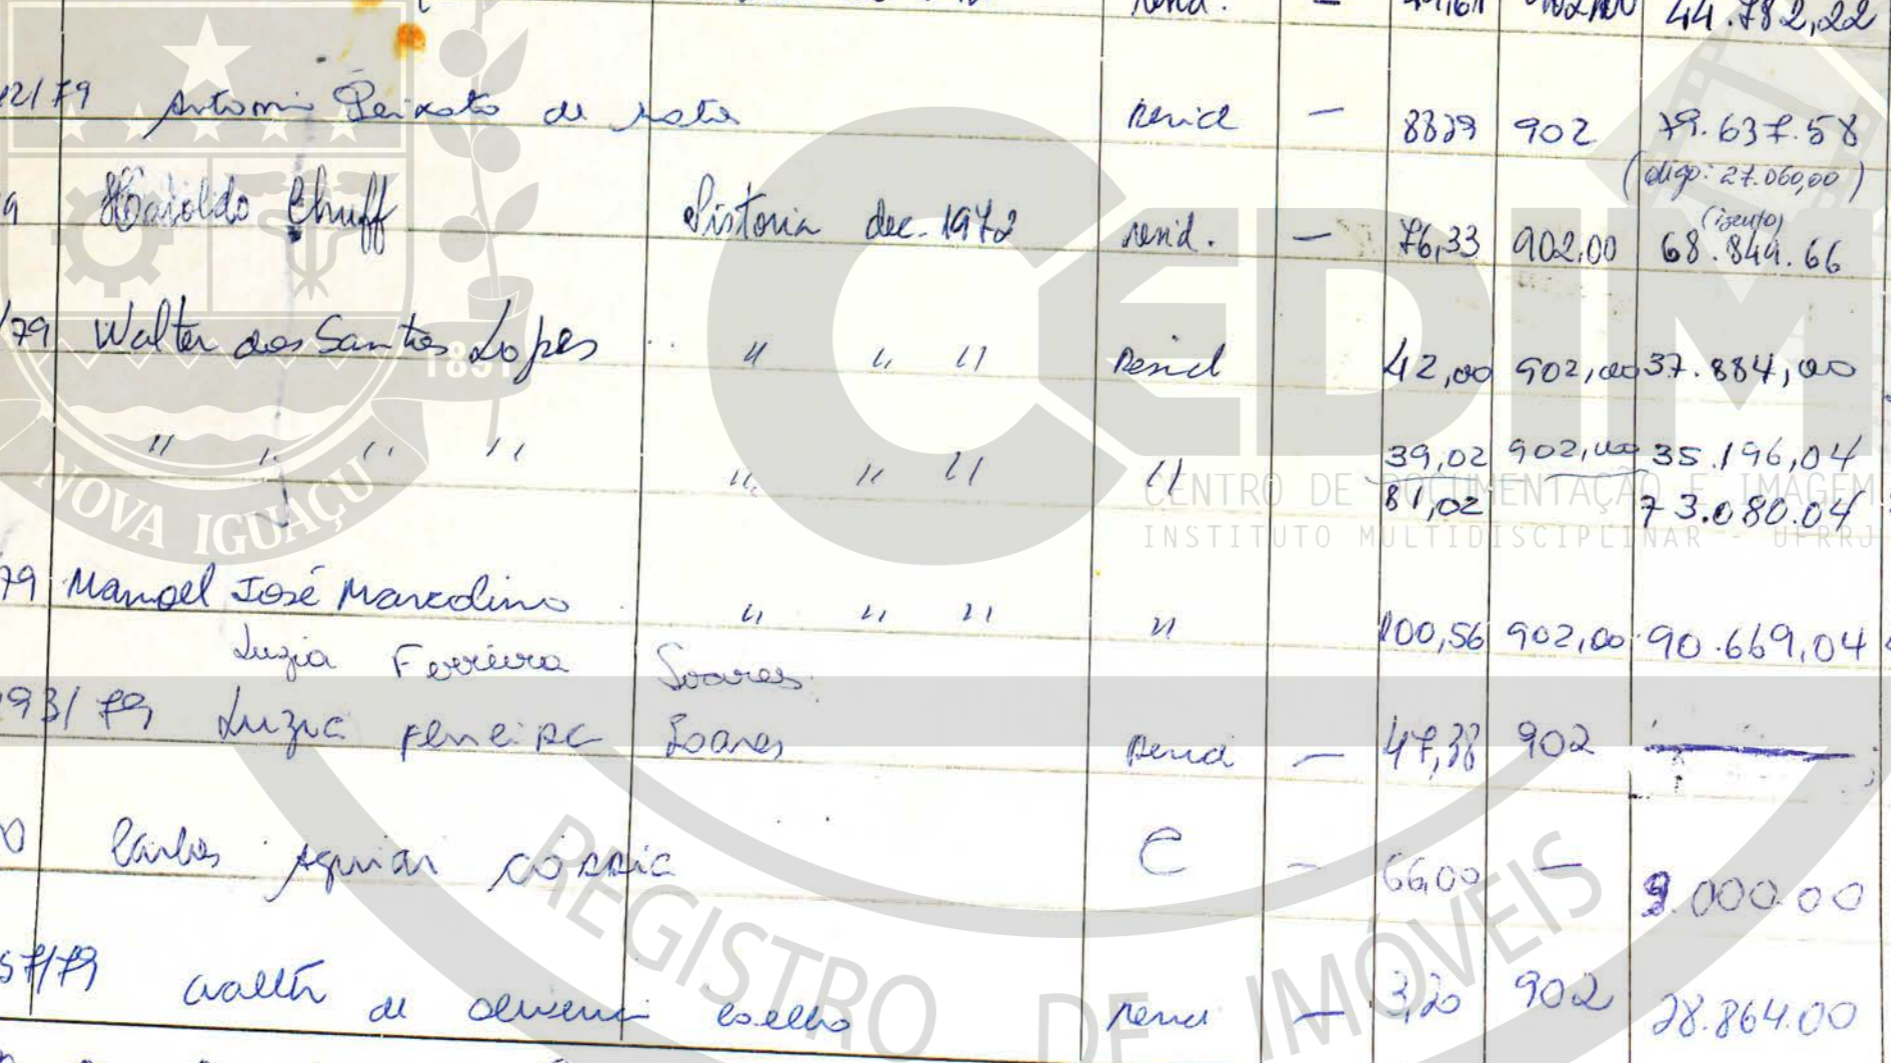 44.782,22
12/79 Antonio Peixoto de Mota Resid — 8829 902 79.637.58
(digo: 27.060,00)
(isento)
9 Haroldo Chuff Vistoria dec. 1972 resid. — 76,33 902,00 68.849.66
/79 Walter dos Santos Lopes " " " Resid 42,00 902,00 37.884,00
" " " " " " " " 39,02 902,00 35.196,04
81,02 73.080.04
79 Manoel José Marcolino " " " " 100,56 902,00 90.669,04
Luzia Ferreira Soares
93/79 Luzia Ferreira Soares Resid — 47,38 902
0 Carlos Aguiar C — 66,00 — 9.000.00
57/79 Walter de Oliveira Coelho Resid — 3,20 902 28.864.00
1891
NOVA IGUAÇU
CEDIM
CENTRO DE DOCUMENTAÇÃO E IMAGEM
INSTITUTO MULTIDISCIPLINAR - UFRRJ
REGISTRO DE IMÓVEIS